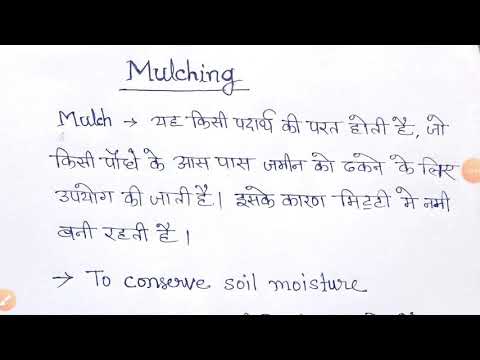 Mulching
Mulch → यह किसी पदार्थ की परत होती है, जो
किसी पौधे के आस पास जमीन को ढकने के लिए
उपयोग की जाती है। इसके कारण मिट्टी मे नमी
बनी रहती है।
→ To conserve soil moisture